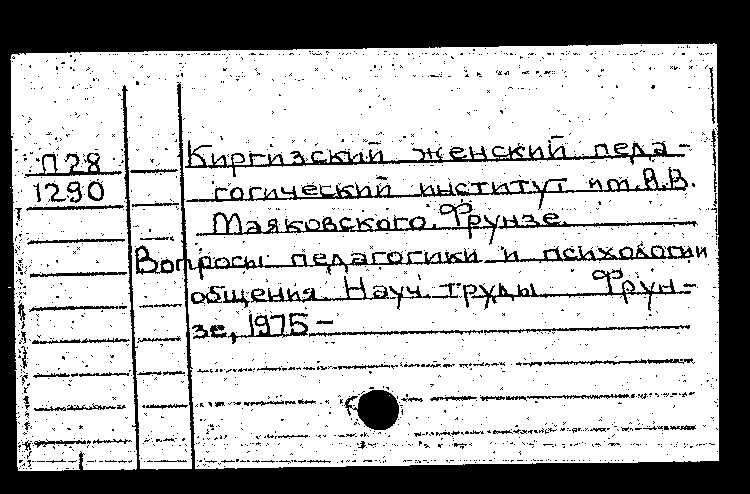 П28
1290
Киргизский женский педа-
гогический институт им.В.В.
Маяковского. Фрунзе.
Вопросы педагогики и психологии
общения. Науч. труды. Фрун-
зе, 1975 –